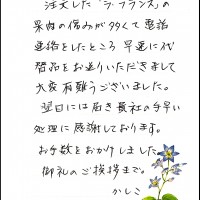 注文した「ラ・フランス」の
果肉の傷みが多くて電話
連絡をしたところ 早速に代
替品をお送りいただきまして
大変有難うございました。
翌日には届き貴社の手早い
処理に感謝しております。
お手数をおかけしました。
御礼のご挨拶まで。
かしこ